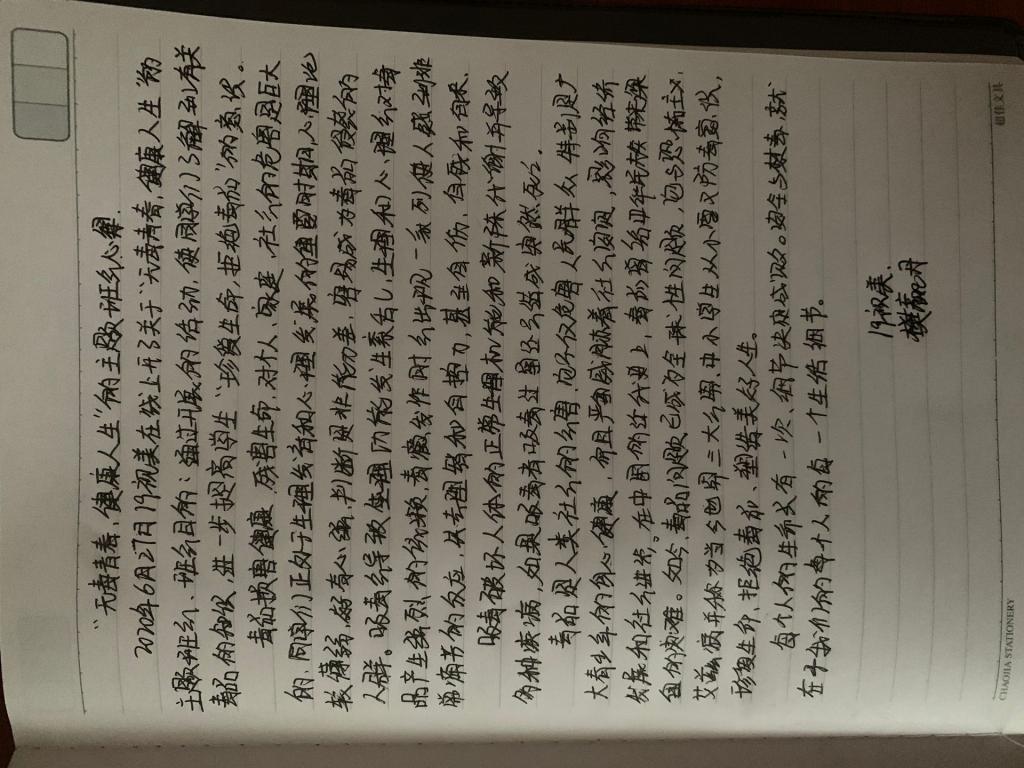 “无毒青春，健康人生”的主题班会心得.
2020年6月27日19视美在线上开了关于“无毒青春，健康人生”的
主题班会、班会目的：通过开展的活动，使同学们了解到有关
毒品的知识，进一步提高学生“珍爱生命，拒绝毒品”的意识。
毒品损害健康，残害生命，对个人、家庭、社会的危害是巨大
的，同学们正处于生理发育和心理发展的重要时期，心理比
较薄弱，好奇心强，判断是非能力差，容易成为毒品侵袭的
人群。吸毒会导致生理功能发生紊乱，生理和心理会对毒
品产生强烈的依赖，毒瘾发作时会出现一系列使人感到非
常痛苦的反应，丧失理智和自控力，甚至自伤，自残和自杀，
吸毒破坏人体的正常生理机能和新陈代谢并导致
多种疾病，如果吸毒者吸毒过量还会造成突然死亡。
毒品是人类社会的公害，它不仅危害人民群众特别是广
大青少年的身心健康，而且严重威胁着社会治安，影响经济
发展和社会进步。在中国的近代史上，毒品曾给中华民族带来深
重的灾难。如今，毒品问题已成为全球性问题，它与恐怖主义，
艾滋病并称为当今世界三大公害，中小学生从小要父防毒意识，
珍爱生命，拒绝毒品、塑造美好人生。
每个人的生命只有一次、细节决定成败。安全与健康就
在于我们的每个人的每一个生活细节。
19视美、
CHAOJIA STATIONERY
超佳文具